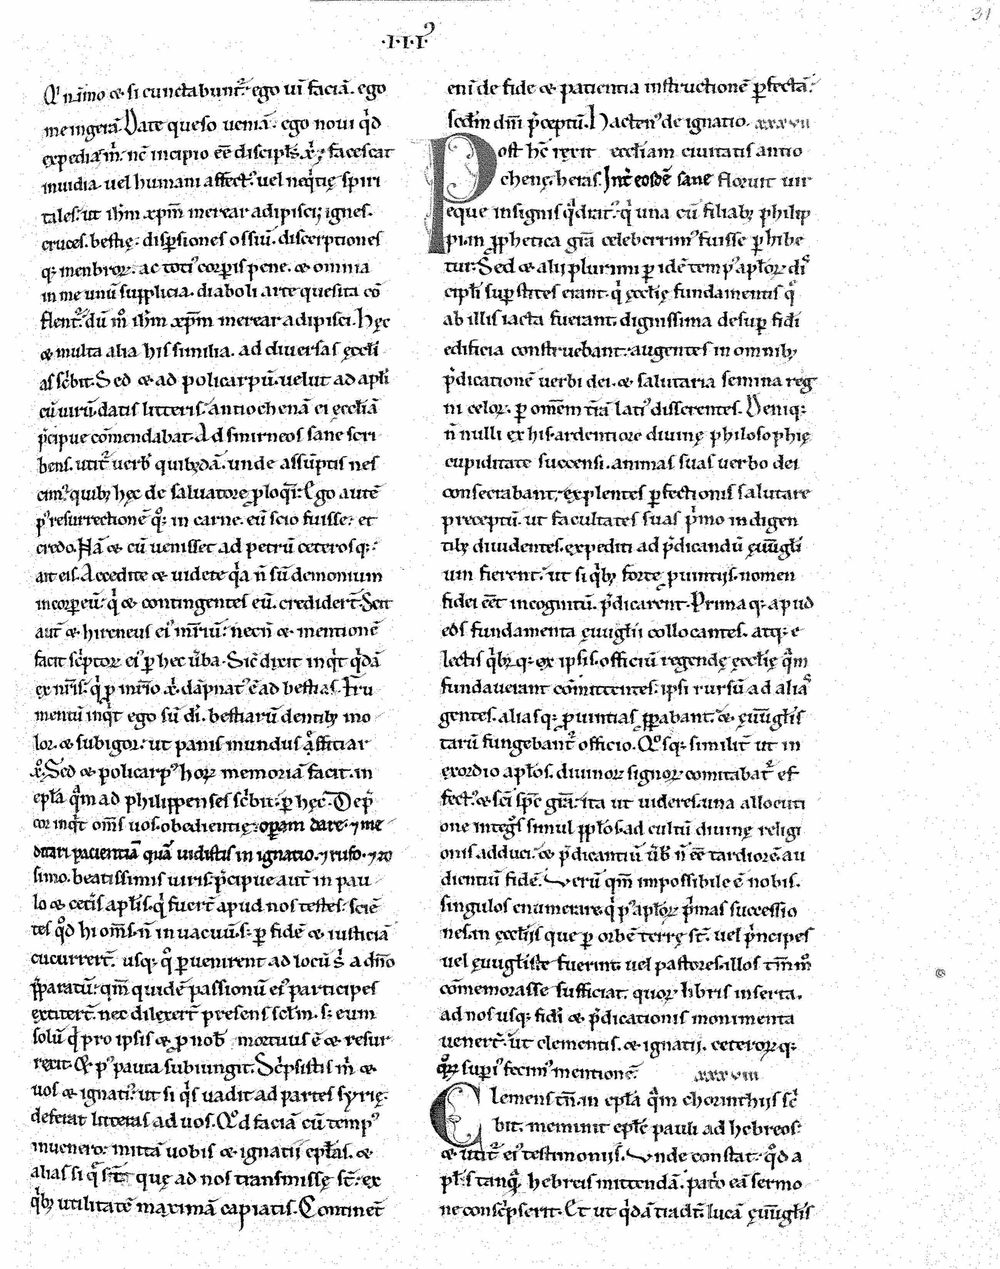 ·III·
31
Q' n̄ īmo & si cunctabunt᷑. ego uī faciā. ego
me ingerā. Date queso ueniā. ego noui qͥd
expediat m̄. nc̄ incipio eē discipl's x̄p̄i. facescat
inuidia uel humani affect᷒. uel neqͥtię spiri
tales. ut ih̄m xp̄m merear adipisci. ignes.
cruces. bestię. disp̄siones ossiū. discerptiones
qꝫ menbroꝝ. ac toti᷒ corp̄is pene. & omnia
in me unū supplicia. diaboli arte quesita cō
flent᷑. dū m̊ ih̄m xp̄m merear adipisci. Hęc
& multa alia his similia. ad diuersas ęccl'i
as sc̄bit. Sed & ad policarpū. uelut ad apl'i
cū uirū. datis litteris. antiochenā ei ęccl'iā
p̄cipue cōmendabat. Ad smirneos sane scri
bens. utit᷑ uerb' quibꝫdā. unde assūptis nes
cim᷒. quibꝫ hęc de saluatore ꝓloqͥt᷑. Ego autē
p᷒ resurrectionē qͦꝫ in carne. eū scio fuisse. et
credo. Nā & cū uenisset ad petrū ceterosqꝫ.
ait eis. Accedite & uidete qͥa n̄ sū demonium
incorp̄eū. qͥ & contingentes eū. credidert̄. Scit
aut̄ & hireneus ei᷒ mr̄iū. necn̄ & mentionē
facit sc̄ptoꝝ ei᷒ ꝑ hec ūba. Sic̄ dixit inqͥt qͥdā
ex nr̄is. qͥ ꝓ mr̄io x̄p̄i. dāpnat᷒ ē ad bestias. Fru
mentū inqͥt ego sū dī. bestiarū dentibꝫ mo
lor. & subigor. ut panis mundus effitiar
x̄p̄i. Sed & policarp᷒ hoꝝ memoriā facit. in
epl'a qͣm ad philippenses sc̄bit. ꝑ hęc. Dep̄
cor inqͥt om̄s uos. obedientię operam dare. ⁊ me
ditari pacientiā quā uidistis in ignatio. ⁊ rufo. ⁊ zo
simo. beatissimis uiris. p̄cipue aut̄ in pau
lo & cet̄is apl'is. qͥ fuert̄ apud nos testes. sciē
tes qͦd hi om̄s. n̄ in uacuū. s; ꝑ fidē & iusticiā
cucurrert̄. usqꝫ qͦ ꝑuenirent ad locū s' a dn̄o
p̄paratū. qm̄ quidē passionū ei᷒ participes
extitert̄. nec dilexert̄ presens sc'lm. s; eum
solū qͥ pro ipsis & ꝓ nob' mortuus ē & resur
rexit. Et p᷒ pauca subiungit. Sc̄psistis m̄ &
uos & ignati᷒. ut si qͥs uadit ad partes syrię.
deferat litteras ad uos. Qͦd faciā cū temp᷒
inuenero. mittā uobis & ignatii epl'as. &
alias si qͦ st̄ quę ad nos transmissę st̄. ex
qͥbꝫ utilitatē maximā capiatis. Continet᷑
eni̅ de fide & patientia instructionē ꝑfectā.
sc'dm dn̄i p̄ceptū. Hacten᷒ de ignatio. xxxvii
Post hc̄ rexit ęccl'iam ciuitatis antio
chenę. heras. Int̄ eosdē sane floruit uir
eque insignis qͣdrat᷒. qͥ una cū filiabꝫ philip
pi in ꝓphetica gr̄a celeberrim᷒ fuisse ꝑhibe
tur. Sed & alii plurimi ꝑ idē temp᷒ apl'oꝝ di
cipl'i sup̄stites erant. qͥ ęccl'ię fundamentis qͦ
ab illis iacta fuerant. dignissima desup̄ fidi
edificia construebant. augentes in omnibꝫ
p̄dicationē uerbi dei. & salutaria semina reg
ni celoꝝ. ꝑ om̄em t̄rā lati᷒ disserentes. Deniqꝫ
n̄nulli ex his. ardentiore diuinę philosophię
cupiditate succensi. animas suas uerbo dei
consecrabant. explentes ꝑfectionis salutare
preceptū. ut facultates suas p̄mo indigen
tibꝫ diuidentes. expediti ad p̄dicandū ęuūgl'i
um fierent. ut si qͥbꝫ forte ꝓuintiis. nomen
fidei eēt incognitū. p̄dicarent. Primaqꝫ apud
eos fundamenta ęuūgl'ii collocantes. atqꝫ e
lectis qͥbꝫqꝫ ex ipsis. officiū regendę ęccl'ię qͣm
fundauerant cōmittentes. ipsi rursū ad alias
gentes. aliasqꝫ ꝓuintias ꝓp̄abant. & ęuūgl'is
tarū fungebant᷑ officio. Qͦsqꝫ similit̄ ut in
exordio apl'os. diuinoꝝ signoꝝ comitabat᷑ ef
fect᷒. & sc̄i sp̄c gr̄a. ita ut uideres. una allocuti
one integͦs simul ppl'os. ad cultū diuinę religi
onis adduci. & p̄dicantiū ūb' n̄ eē tardiorē. au
dientiū fidē. Verū qm̄ impossibile ē nobis.
singulos enumerare. qͥ p᷒ apl'oꝝ p̄mas successio
nes. in ęccl'iis que ꝑ orbē terrę st̄. uel p̄ncipes
uel ęuūgl'istę fuerint. uel pastores. illos tm̄m̊
cōmemorasse sufficiat. quoꝝ libris inserta.
ad nos usqꝫ fidi & p̄dicationis monimenta
uenert̄. ut clementis. & ignatii. ceteroꝝqꝫ
qͦꝝ superi᷒ fecim᷒ mentionē. xxxviii
Clemens tn̄. in epl'a qͣm chorinthiis sc̄
bit. meminit epl'e pauli ad hebreos.
& utit᷑ ei᷒ testimoniis. Vnde constat. qͦd a
pl's tanqͣ hebreis mittendā. pat̄o eā sermo
ne consc̄pserit. Et ut qͥdā tradt̄. lucā ęuūgl'is